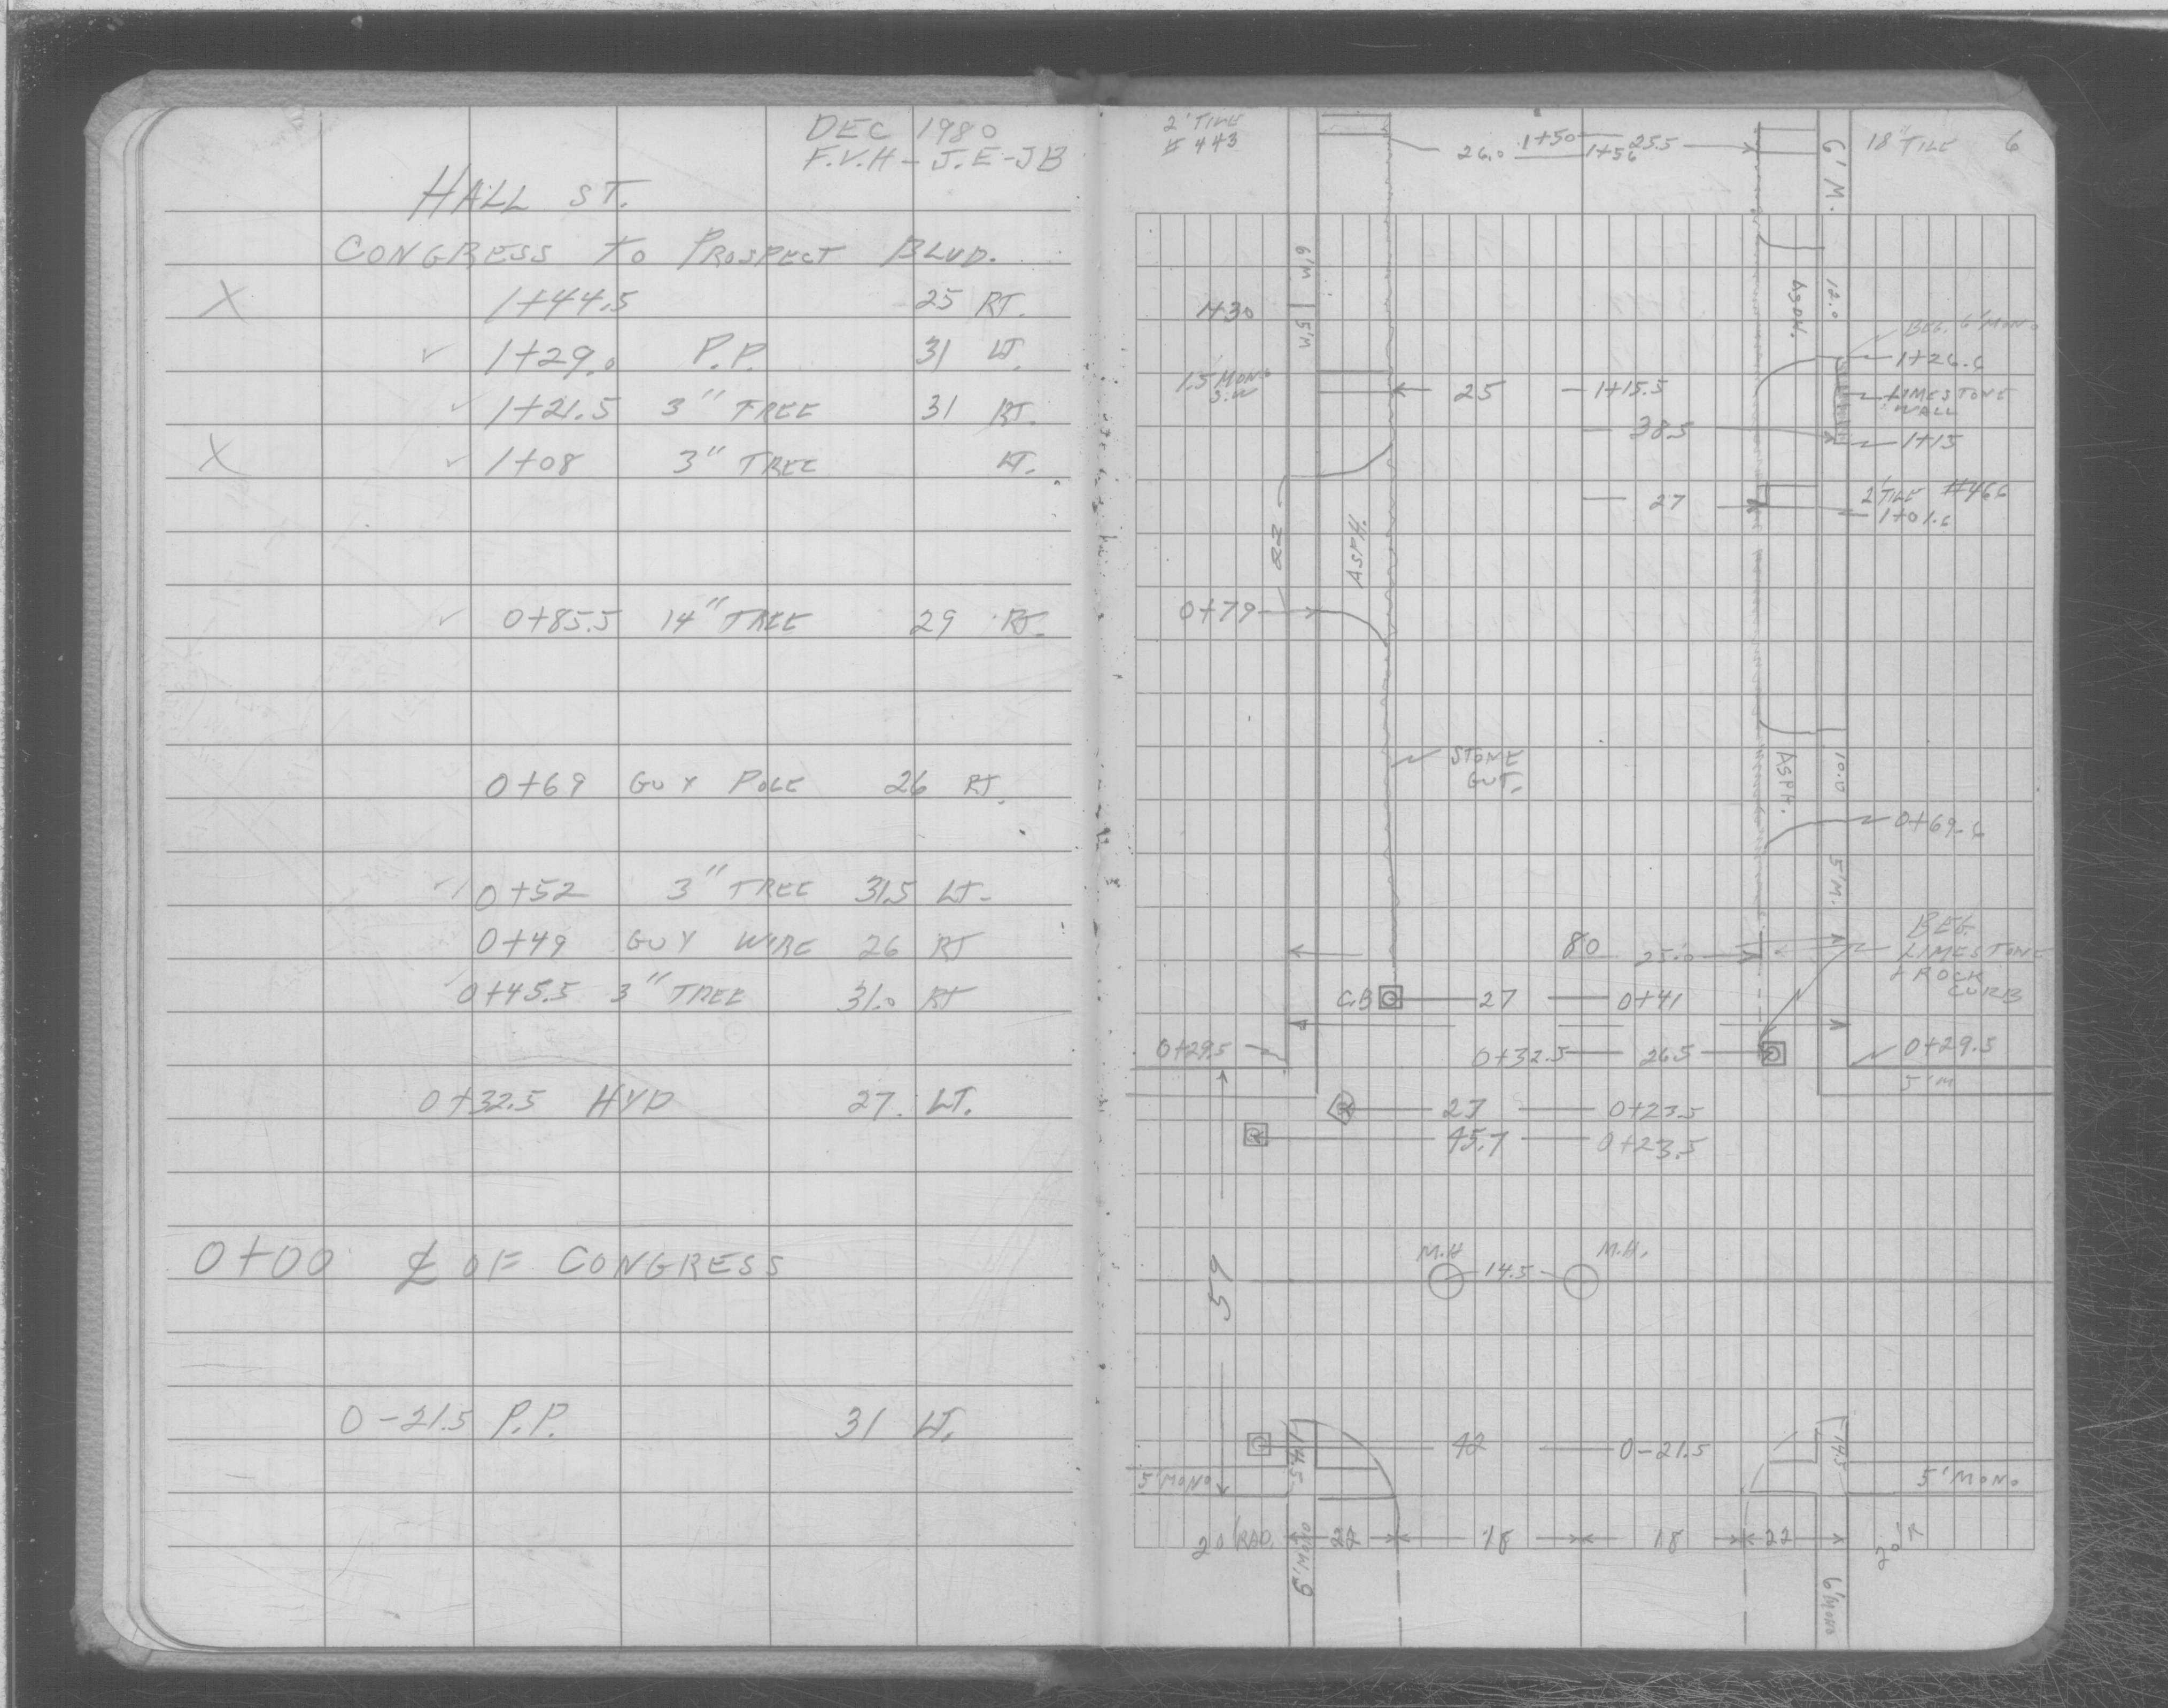 DEC 1980
F.V.H - J.E - JB
HALL ST.
CONGRESS TO PROSPECT BLVD.
X 1+44.5 25 RT.
✓ 1+29.0 P.P. 31 LT.
✓ 1+21.5 3" TREE 31 RT.
X ✓ 1+08 3" TREE LT.
✓ 0+85.5 14" TREE 29 RT.
0+69 GUY POLE 26 RT.
✓ 0+52 3" TREE 31.5 LT.
0+49 GUY WIRE 26 RT
✓ 0+45.5 3" TREE 31.0 RT
0+32.5 HYD 27. LT.
0+00 ℄ OF CONGRESS
0-21.5 P.P. 31 LT.
2' TILE
# 443
26.0 1+50
1+56 25.5
6' M.
18" TILE
6
6' M
5' M
1+30
ASPH.
12.0
BEG. 6' MONO
1+26.6
1.5 MONO
S.W
25 1+15.5
LIMESTONE
WALL
38.5
1+15
27
2' TILE #466
1+01.6
22
ASPH.
0+79
STONE
GUT.
ASPH.
10.0
0+69.6
5' M.
80
25.0
BEG.
LIMESTONE
+ ROCK
CURB
CB 27 0+41
0+29.5
0+32.5 26.5
0+29.5
5' M
27 0+23.5
45.7 0+23.5
59
M.H
14.5
M.H.
42 0-21.5
14.5
14.5
5' MONO
5' MONO
20' RAD.
22 18 18 22
20'
6' MONO
6' MONO